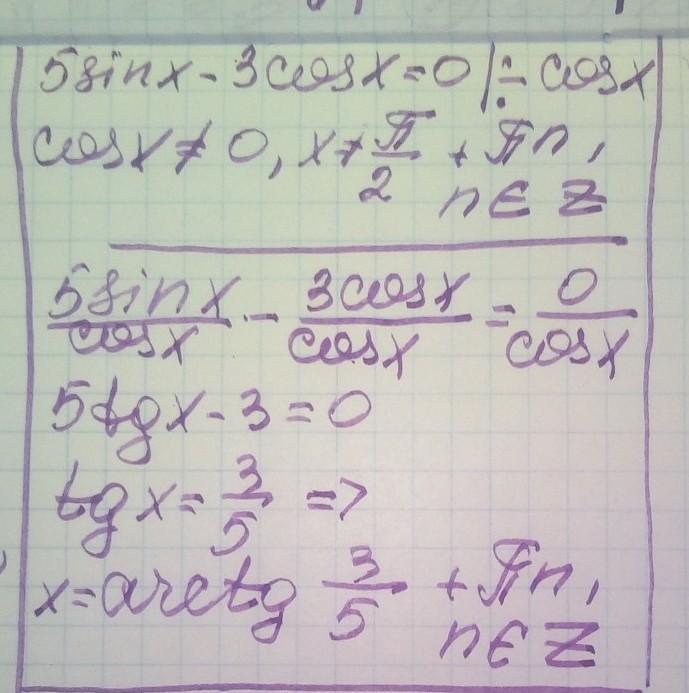 5sinx - 3cosx = 0 | ÷ cosx
cosx ≠ 0, x ≠ π/2 + πn,
n ∈ Z
5sinx/cosx - 3cosx/cosx = 0/cosx
5tgx - 3 = 0
tgx = 3/5 =>
x = arctg 3/5 + πn,
n ∈ Z